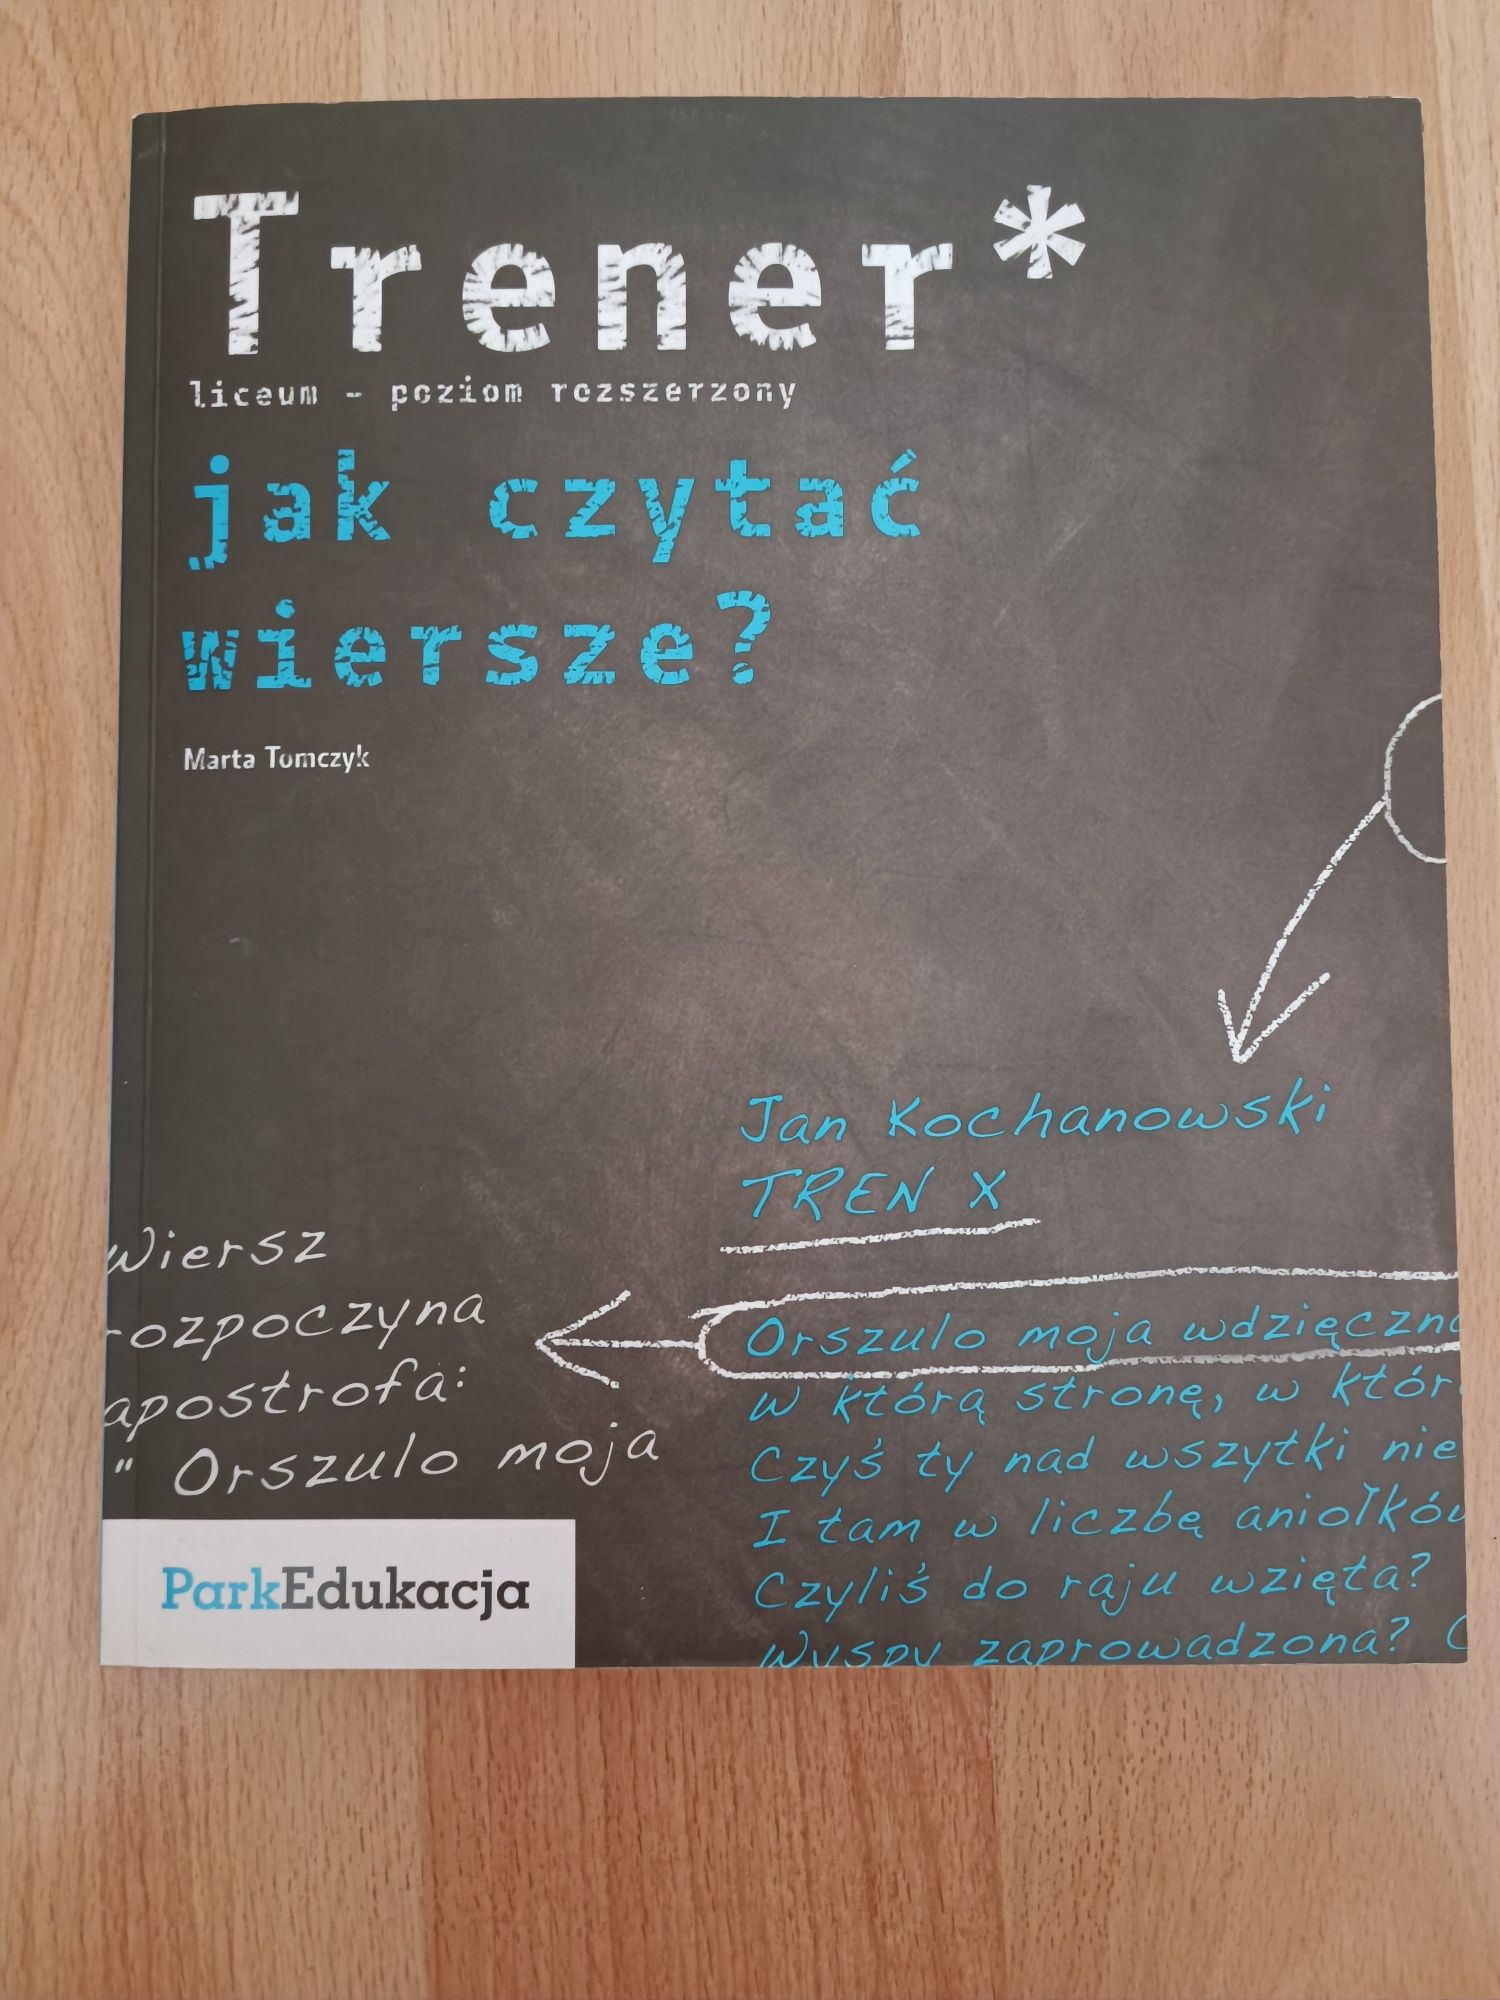 Trener*
liceum - poziom rozszerzony
jak czytać
wiersze?
Marta Tomczyk
Jan Kochanowski
TREN X
Wiersz
rozpoczyna
apostrofa:
" Orszulo moja
Orszulo moja wdzięczna
W którą stronę, w któr
Czyś ty nad wszytki nie
I tam w liczbę aniołków
Czyliś do raju wzięta?
Wyspy zaprowadzona?
ParkEdukacja